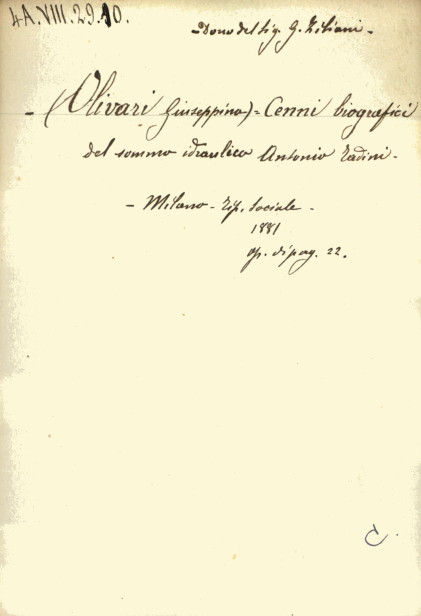 4A.VIII.29.10.
- Dono del Sig. G. Ziliani -
- (Olivari Giuseppina) = Cenni biografici
del sommo idraulico Antonio Tadini -
- Milano - Tip. Sociale -
1881
op. di pag. 22.
C.